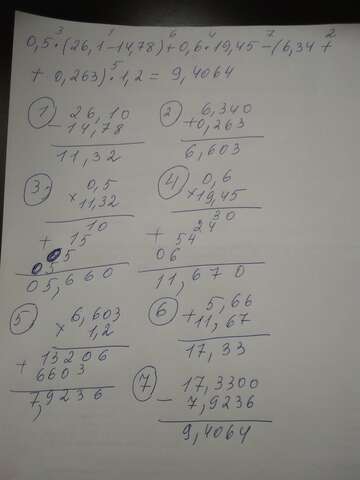 3 1 6 4 7 2
0,5·(26,1-14,78)+0,6·19,45-(6,34+
5
+ 0,263)·1,2= 9,4064
1) 26,10
- 14,78
11,32
2) 6,340
+0,263
6,603
3) 0,5
×11,32
10
+ 15
05
05
05,660
4) 0,6
×19,45
30
+ 24
54
06
11,670
5) 6,603
× 1,2
+ 13206
6603
7,9236
6) + 5,66
11,67
17,33
7) - 17,3300
7,9236
9,4064